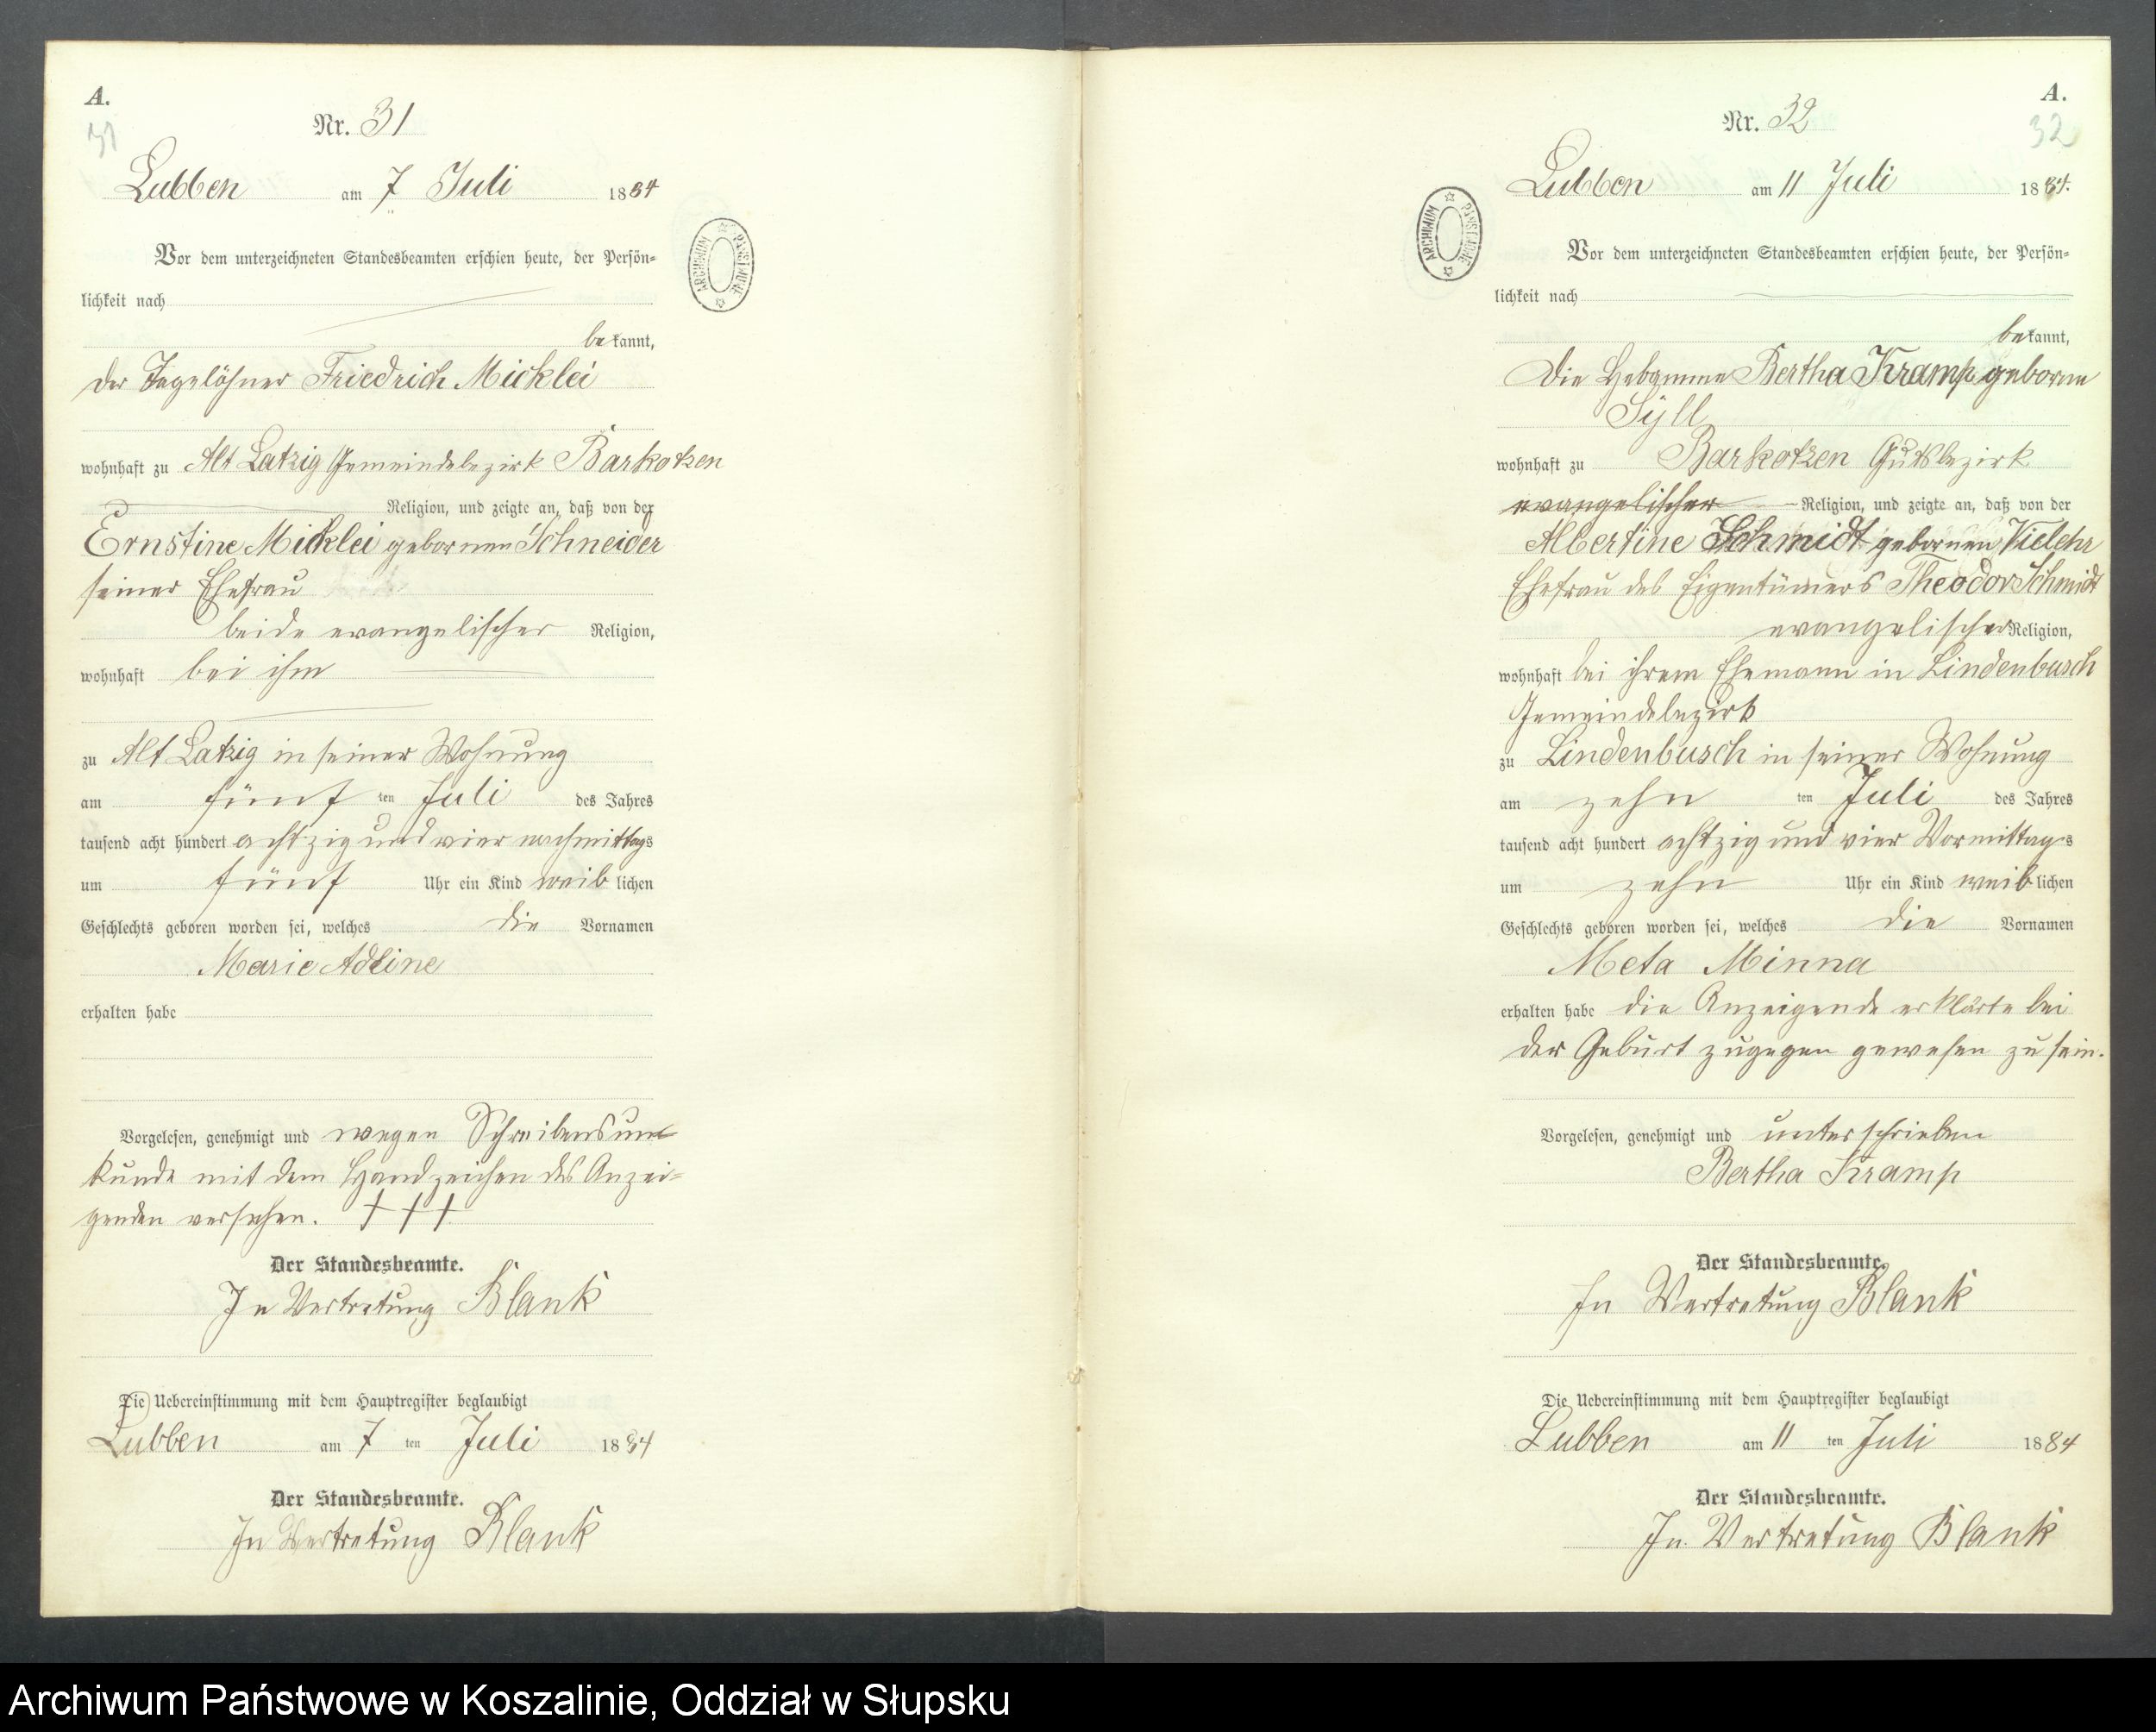 A.
31
Nr. 31
Lubben am 7 Juli 1884
ARCHIWUM PAŃSTWOWE
Vor dem unterzeichneten Standesbeamten erschien heute, der Persön-
lichkeit nach
bekannt,
der Tagelöhner Friedrich Micklei
wohnhaft zu Alt Latzig Gemeindebezirk Barkotzen
Religion, und zeigte an, daß von der
Ernstine Micklei gebornen Schneider
seiner Ehefrau
beide evangelischer Religion,
wohnhaft bei ihm
zu Alt Latzig in seiner Wohnung
am fünf ten Juli des Jahres
tausend acht hundert achtzig und vier nachmittags
um fünf Uhr ein Kind weiblichen
Geschlechts geboren worden sei, welches die Vornamen
Marie Adline
erhalten habe
Vorgelesen, genehmigt und wegen Schreibensun
kunde mit dem Handzeichen des Anzei-
genden versehen. † † †
Der Standesbeamte.
In Vertretung Blank
Die Uebereinstimmung mit dem Hauptregister beglaubigt
Lubben am 7 ten Juli 1884
Der Standesbeamte.
In Vertretung Blank
A.
32
Nr. 32
Lubben am 11 Juli 1884.
ARCHIWUM PAŃSTWOWE
Vor dem unterzeichneten Standesbeamten erschien heute, der Persön-
lichkeit nach
bekannt,
die Hebamme Bertha Kramp geborne
Syll
wohnhaft zu Barkotzen Gutsbezirk
evangelischer Religion, und zeigte an, daß von der
Albertine Schmidt gebornen Vielehr
Ehefrau des Eigentümers Theodor Schmidt
evangelischer Religion,
wohnhaft bei ihrem Ehemann in Lindenbusch
Gemeindebezirk
zu Lindenbusch in seiner Wohnung
am zehn ten Juli des Jahres
tausend acht hundert achtzig und vier Vormittags
um zehn Uhr ein Kind weiblichen
Geschlechts geboren worden sei, welches die Vornamen
Meta Minna
erhalten habe die Anzeigende erklärte bei
der Geburt zugegen gewesen zu sein.
Vorgelesen, genehmigt und unterschrieben
Bertha Kramp
Der Standesbeamte.
In Vertretung Blank
Die Uebereinstimmung mit dem Hauptregister beglaubigt
Lubben am 11 ten Juli 1884
Der Standesbeamte.
In Vertretung Blank
Archiwum Państwowe w Koszalinie, Oddział w Słupsku